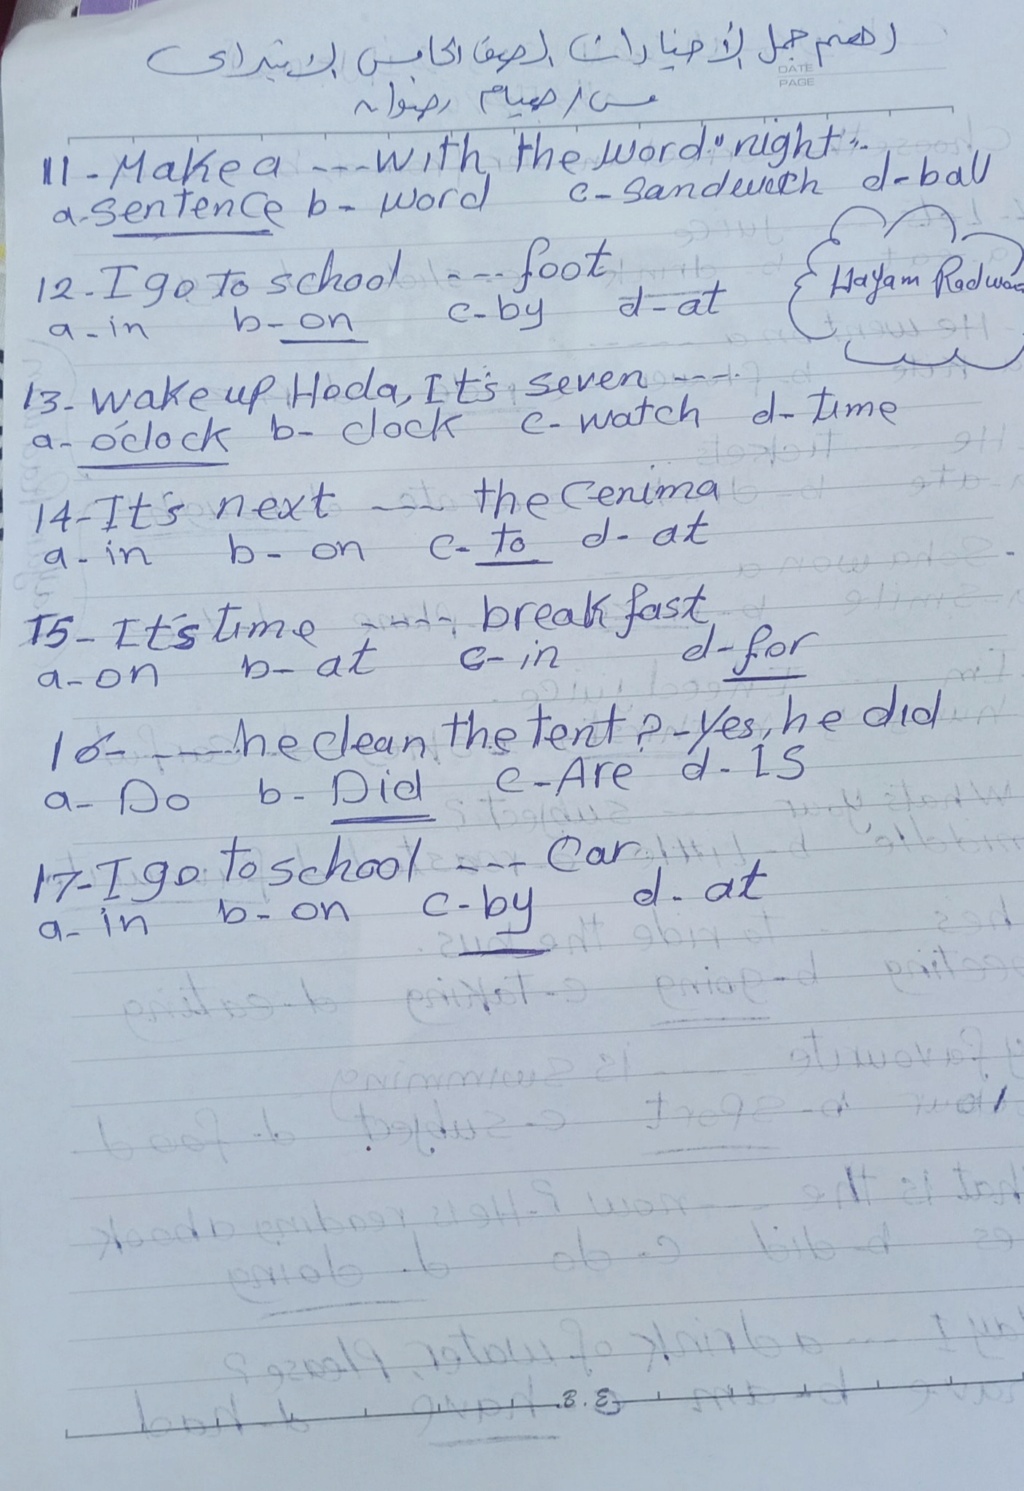 اهم جمل الاختيارات الصف الخامس الابتدائى
مس / هيام رضوان
DATE
PAGE
11-Make a ---with the word "night".
a-sentence b- word c-sandwech d-ball
12-I go To school ---foot
a-in b-on c-by d-at
Hayam Radwan
13-wake up Hoda, It's seven ----.
a- o'clock b- clock c-watch d-time
14-It's next ---- the Cenima
a-in b- on c-to d- at
15-It's time ----, breakfast
a-on b-at c-in d-for
16- ----he clean the tent?-Yes, he did
a- Do b- Did c-Are d-IS
17-I go to school --- Car
a- in b- on c-by d- at